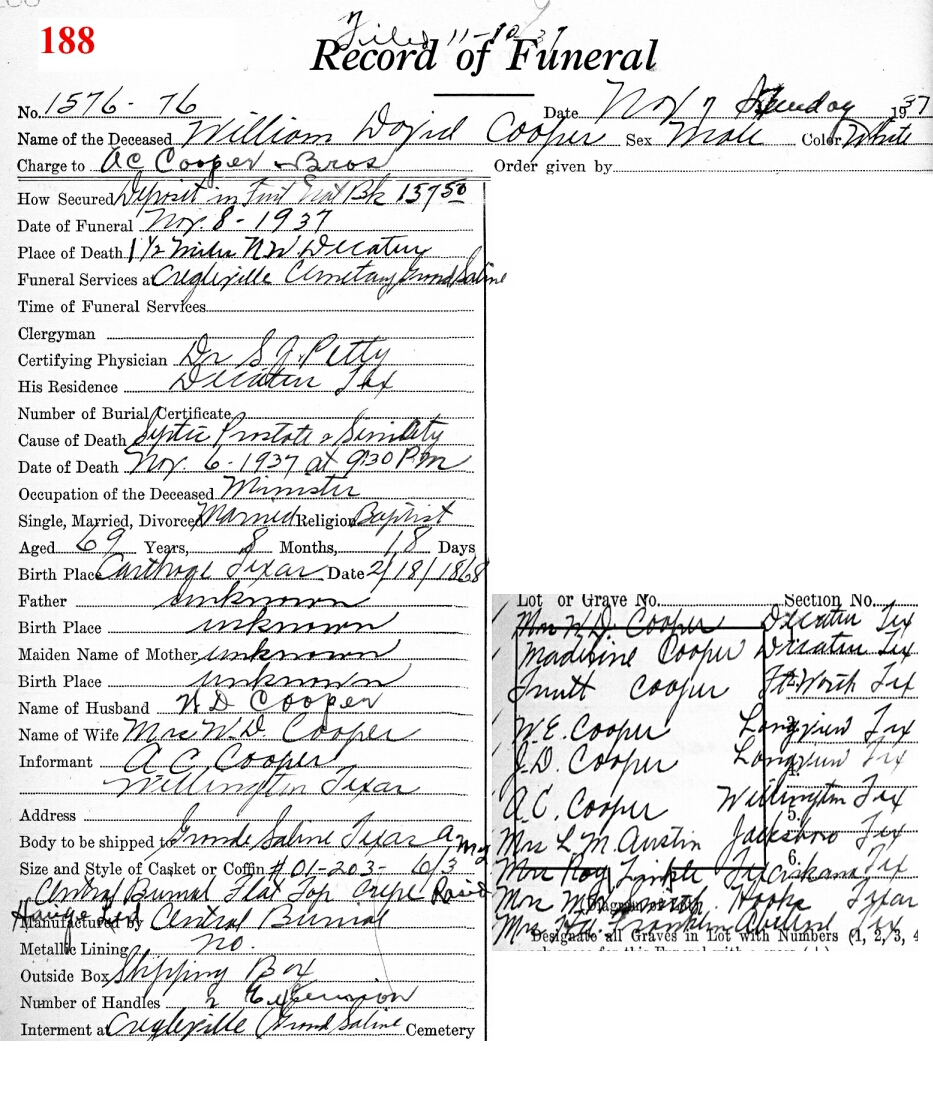 188
Filed 11-10-37
Record of Funeral
No. 1576 - 76 Date Nov 7 Sunday 1937
Name of the Deceased William David Cooper Sex Male Color White
Charge to A C Cooper & Bros Order given by
How Secured Deposit in First Nat Bk 157 50
Date of Funeral Nov. 8 - 1937
Place of Death 1 1/2 miles N W Decatur
Funeral Services at Creagleville Cemetary Grand Saline
Time of Funeral Services
Clergyman
Certifying Physician Dr S. J. Petty
His Residence Decatur Tex
Number of Burial Certificate
Cause of Death Septic Prostate &
Date of Death Nov. 6 - 1937 at 9:30 P.m
Occupation of the Deceased Minister
Single, Married, Divorced Married Religion Baptist
Aged 69 Years, 8 Months, 18 Days
Birth Place Carthage Texas Date 2/18/1868
Father unknown
Birth Place unknown
Maiden Name of Mother unknown
Birth Place unknown
Name of Husband W D Cooper
Name of Wife Mrs W. D. Cooper
Informant A C Cooper
Wellington Texas
Address
Body to be shipped to Grande Saline Texas
Size and Style of Casket or Coffin # 01-203- 6/3
Central Burial Flat Top Crepe Raised
Manufactured by Central Burial
Metallic Lining no.
Outside Box Shipping Box
Number of Handles 2 Extension
Interment at Creagleville Grand Saline Cemetery
Lot or Grave No. Section No.
Mrs W. D. Cooper Decatur Tex
Madeline Cooper Decatur Tex
Truitt Cooper Ft. Worth Tex
W. E. Cooper Longview Tex
J. D. Cooper Longview Tex
A. C. Cooper Wellington Tex
5.
Mrs L. M. Austin Jacksboro Tex
6.
Mrs Roy Texarkana Tex
Mrs Smith Hooks Texas
Diagram of Lot
Mrs Franklin Abilene Tex
Designate all Graves in Lot with Numbers (1, 2, 3, 4